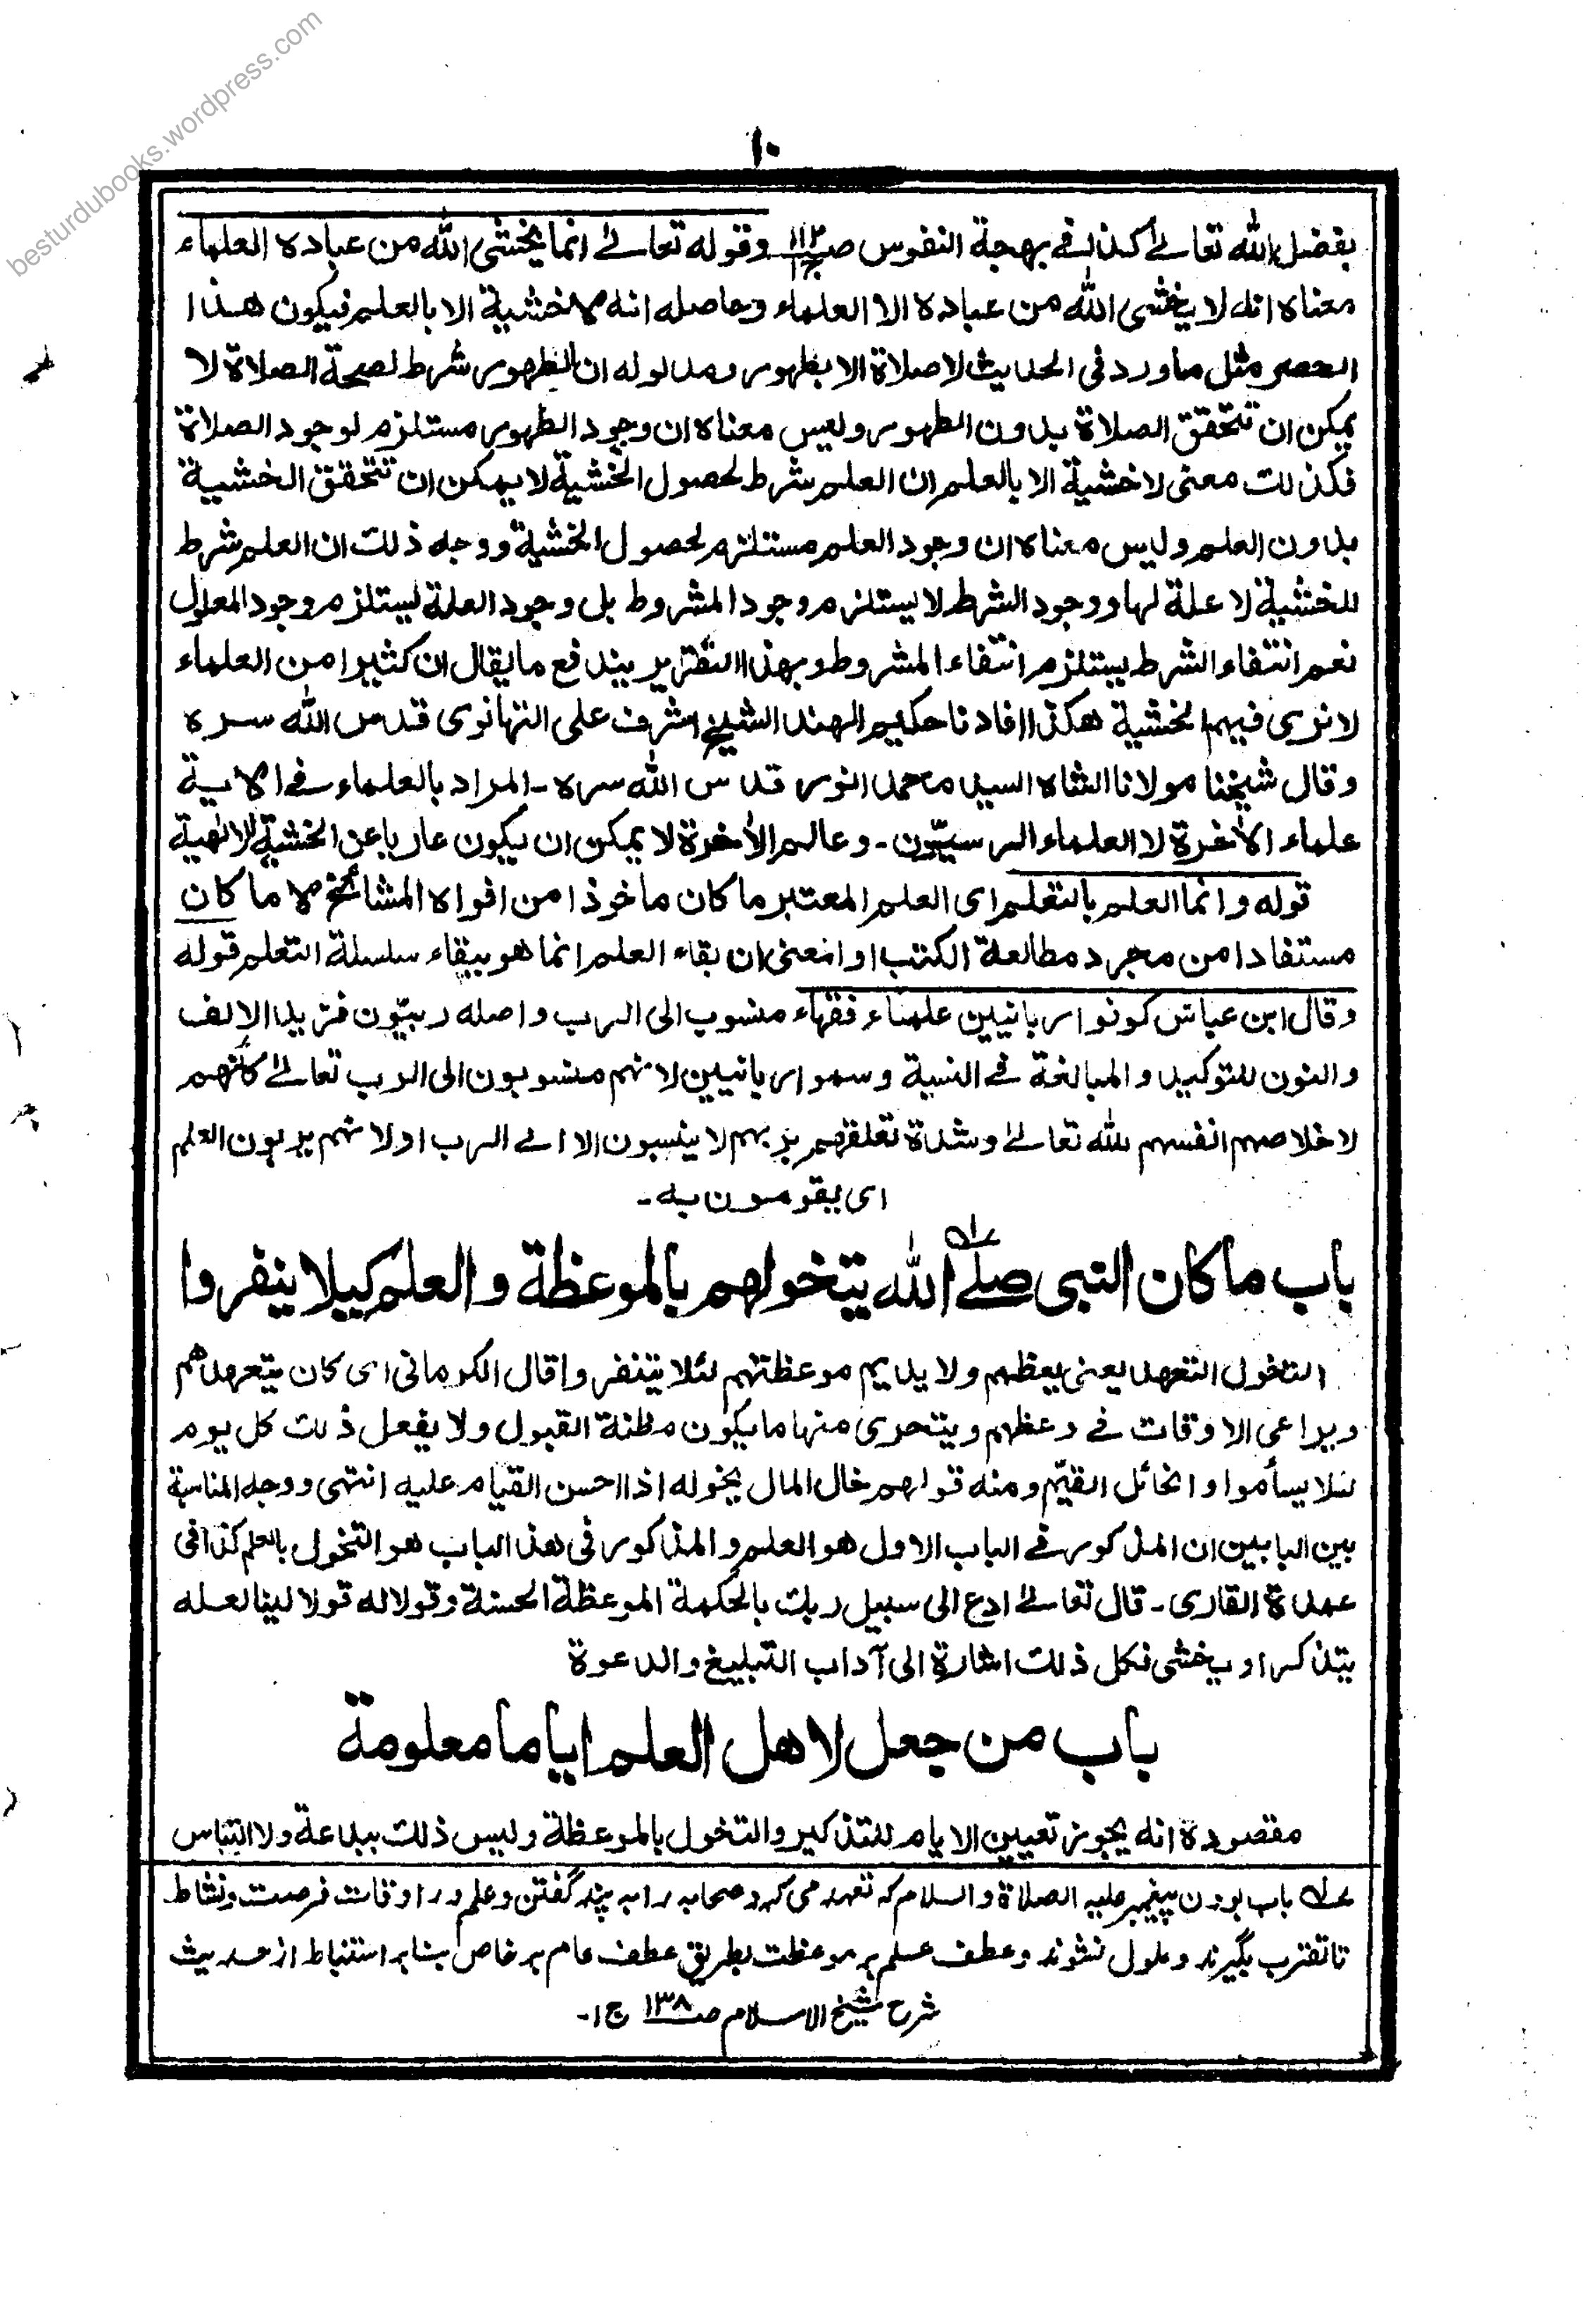 besturdubooks.wordpress.com
١٠
بفضل الله تعالے كذا فے بهجة النفوس ص١١٢ ج١ وقوله تعالے انما يخشى الله من عباده العلماء
معناه انه لا يخشى الله من عباده الا العلماء وحاصله انه لا خشية الا بالعلم فيكون هذا
الحصر مثل ماورد فى الحديث لا صلاة الا بطهور ومدلوله ان الطهور شرط لصحة الصلاة لا
يمكن ان تتحقق الصلاة بدون الطهور وليس معناه ان وجود الطهور مستلزم لوجود الصلاة
فكذلك معنى لا خشية الا بالعلم ان العلم شرط لحصول الخشية لا يمكن ان تتحقق الخشية
بدون العلم وليس معناه ان وجود العلم مستلزم لحصول الخشية ووجه ذلك ان العلم شرط
للخشية لا علة لها ووجود الشرط لا يستلزم وجود المشروط بل وجود العلة يستلزم وجود المعلول
نعم انتفاء الشرط يستلزم انتفاء المشروط وبهذا التقرير يندفع ما يقال ان كثيرا من العلماء
لا نرى فيهم الخشية هكذا افادنا حكيم الهند الشيخ اشرف على التهانوى قدس الله سره
وقال شيخنا مولانا الشاه السيد محمد انور قدس الله سره ـ المراد بالعلماء فے الآية
علماء الآخرة لا العلماء الرسميّون ـ وعالم الآخرة لا يمكن ان يكون عاريا عن الخشية الالهية
قوله وانما العلم بالتعلم اى العلم المعتبر ما كان ماخوذا من افواه المشائخ لا ما كان
مستفادا من مجرد مطالعة الكتب او المعنى ان بقاء العلم انما هو ببقاء سلسلة التعلم قوله
وقال ابن عباس كونوا ربانيين علماء فقهاء منسوب الى الرب واصله ربيّون فزيد الالف
والنون للتوكيد والمبالغة فے النسبة وسموا ربانيين لانهم منسوبون الى الرب تعالے كانهم
لاخلاصهم انفسهم لله تعالے وشدة تعلقهم بربهم لا ينسبون الا الے الرب او لانهم يربون العلم
اى يقومون به ـ
باب ما كان النبى صلے الله يتخولهم بالموعظة والعلم كيلا ينفروا
التخول التعهد يعنى يعظهم ولا يديم موعظتهم لئلا يتنفروا قال الكرمانى اى كان يتعهدهم
ويراعى الاوقات فے وعظهم ويتحرى منها ما يكون مظنة القبول ولا يفعل ذلك كل يوم
لئلا يسأموا والخائل القيّم ومنه قولهم خال المال يخوله اذا احسن القيام عليه انتهى ووجه المناسبة
بين البابين ان المذكور فے الباب الاول هو العلم والمذكور فى هذا الباب هو التخول بالعلم كذا فى
عمدة القارى ـ قال تعالے ادع الى سبيل ربك بالحكمة الموعظة الحسنة وقولا له قولا لينا لعله
يتذكر او يخشى فكل ذلك اشارة الى آداب التبليغ والدعوة
باب من جعل لاهل العلم اياما معلومة
مقصوده انه يجوز تعيين الايام للتذكير والتخول بالموعظة وليس ذلك ببدعة ولا التباس
عله باب بودن پیغمبر علیه الصلاة والسلام که تعهد می کرد صحابه را به پند گفتن وعلم در اوقات فرصت ونشاط
تا تقرب بگیرند وملول نشوند وعطف علم بر موعظت بطریق عطف عام بر خاص بنابر استنباط از حدیث
شرح شیخ الاسلام ص١٣٨ ج١ ـ